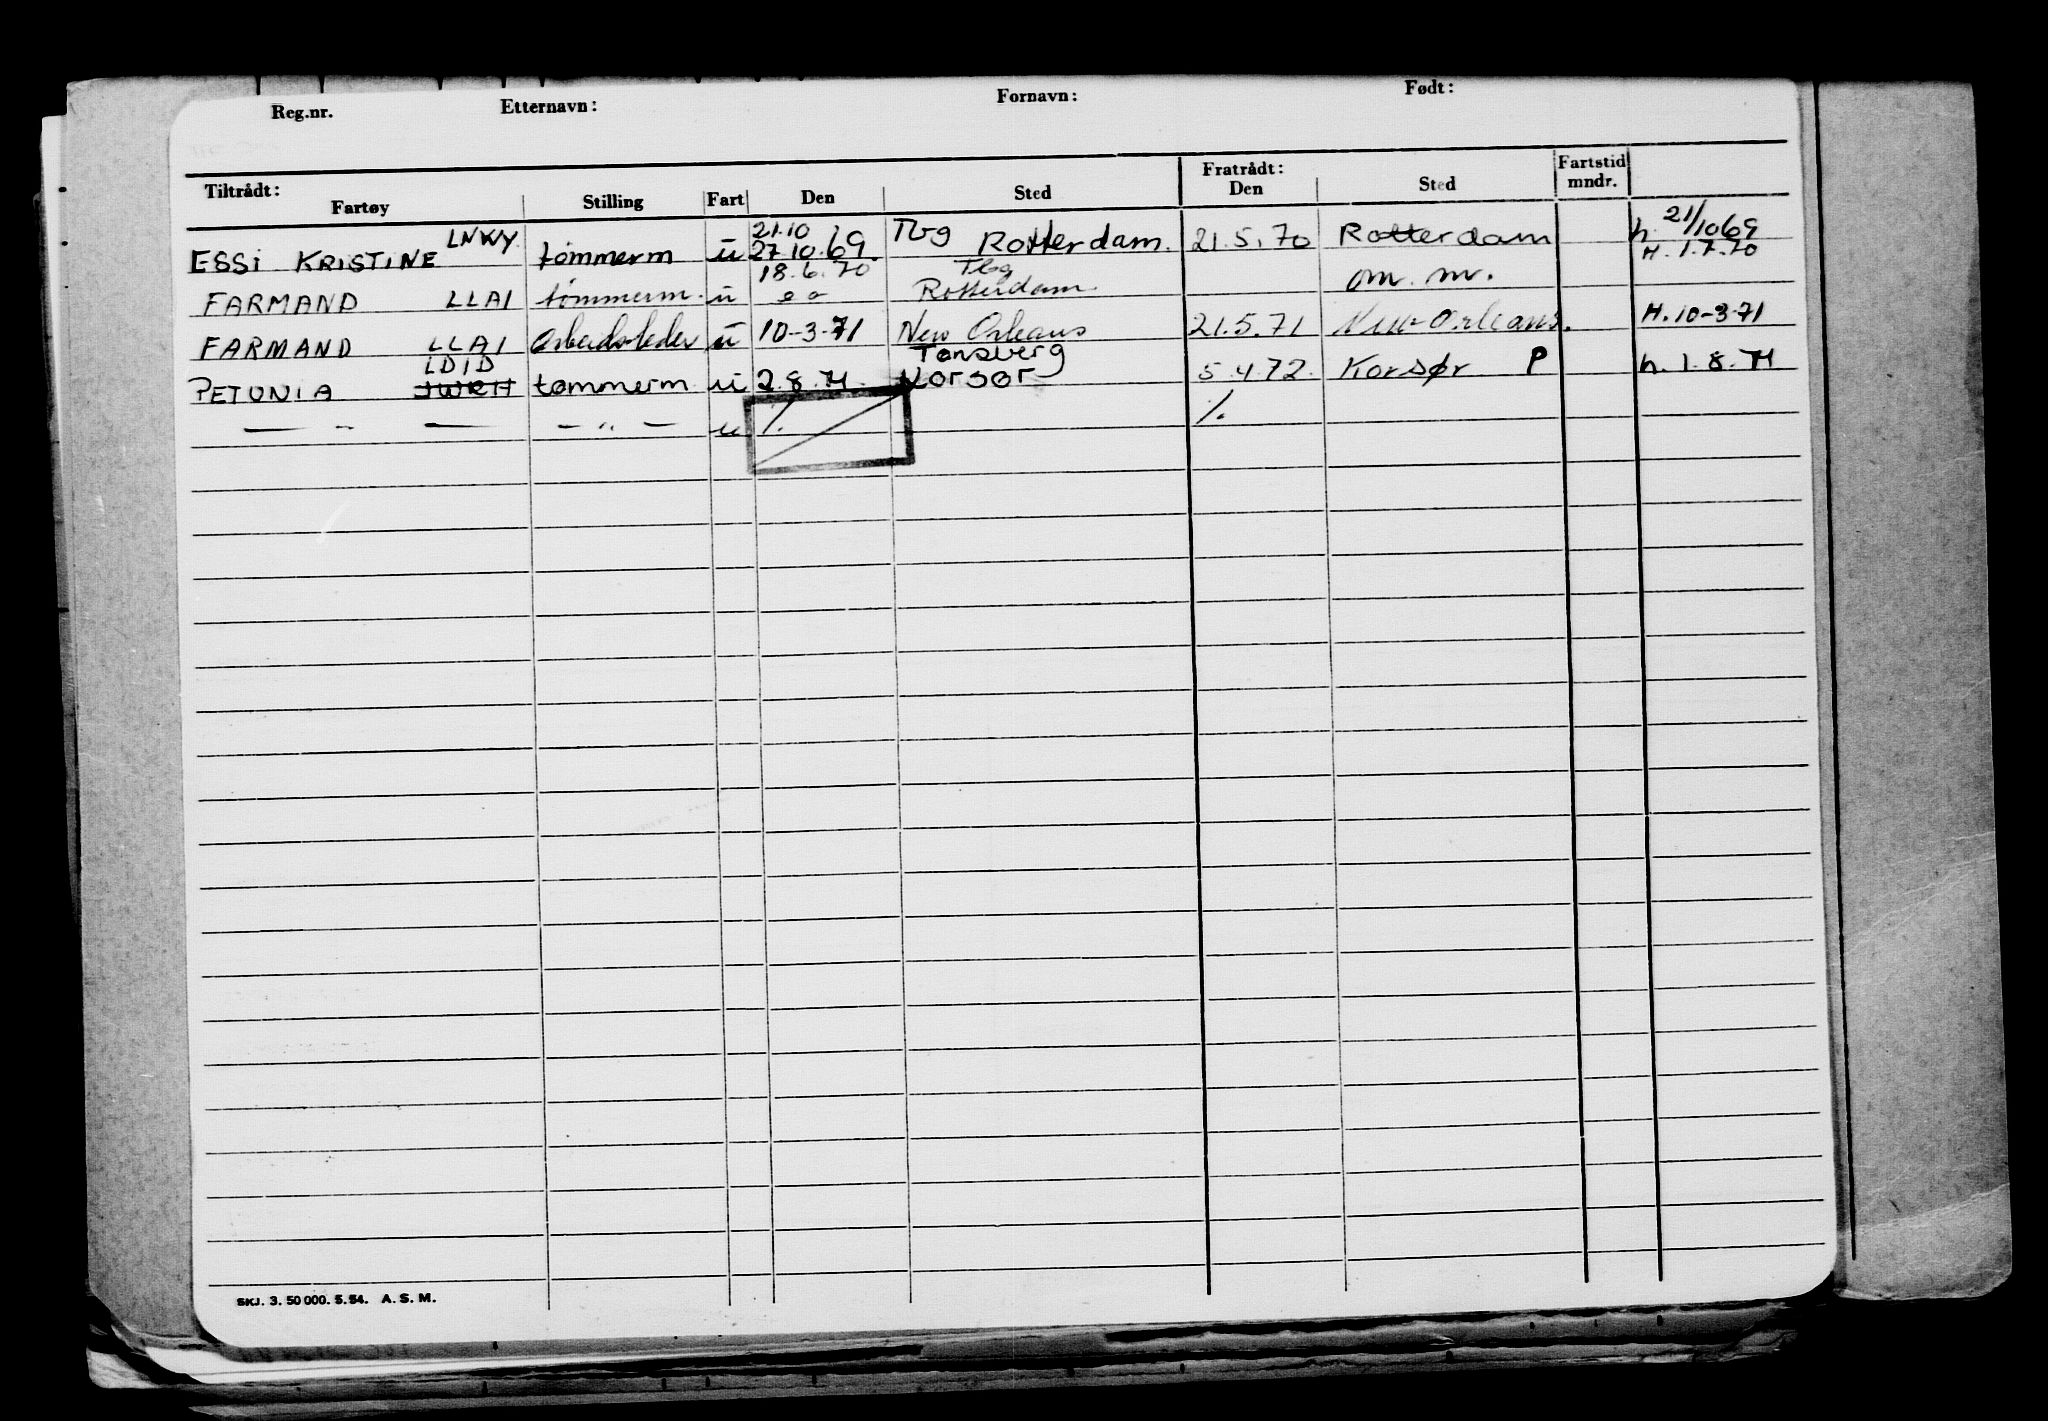 Reg.nr. Etternavn: Fornavn: Født:
Tiltrådt: Fratrådt: Fartstid
Fartøy Stilling Fart Den Sted Den Sted mndr.
LNKY 21.10 Tbg 21/
ESSI KRISTINE tømmerm u 27.10.69. Rotterdam. 21.5.70 Rotterdam h. 1069
18.6.70 Tbg H. 1.7.70
FARMAND LLAI tømmerm. u Rotterdam om. m.
FARMAND LLAI Arbeidsleder u 10-3-71 New Orleans 21.5.71 New Orleans. H. 10-3-71
LDID Tønsberg
PETUNIA JWRH tømmerm u 2.8.71. Korsør 5.4.72. Korsør P h. 1.8.71
— " — — " — u ./. ./.
SKJ. 3. 50 000. 5.54. A. S. M.